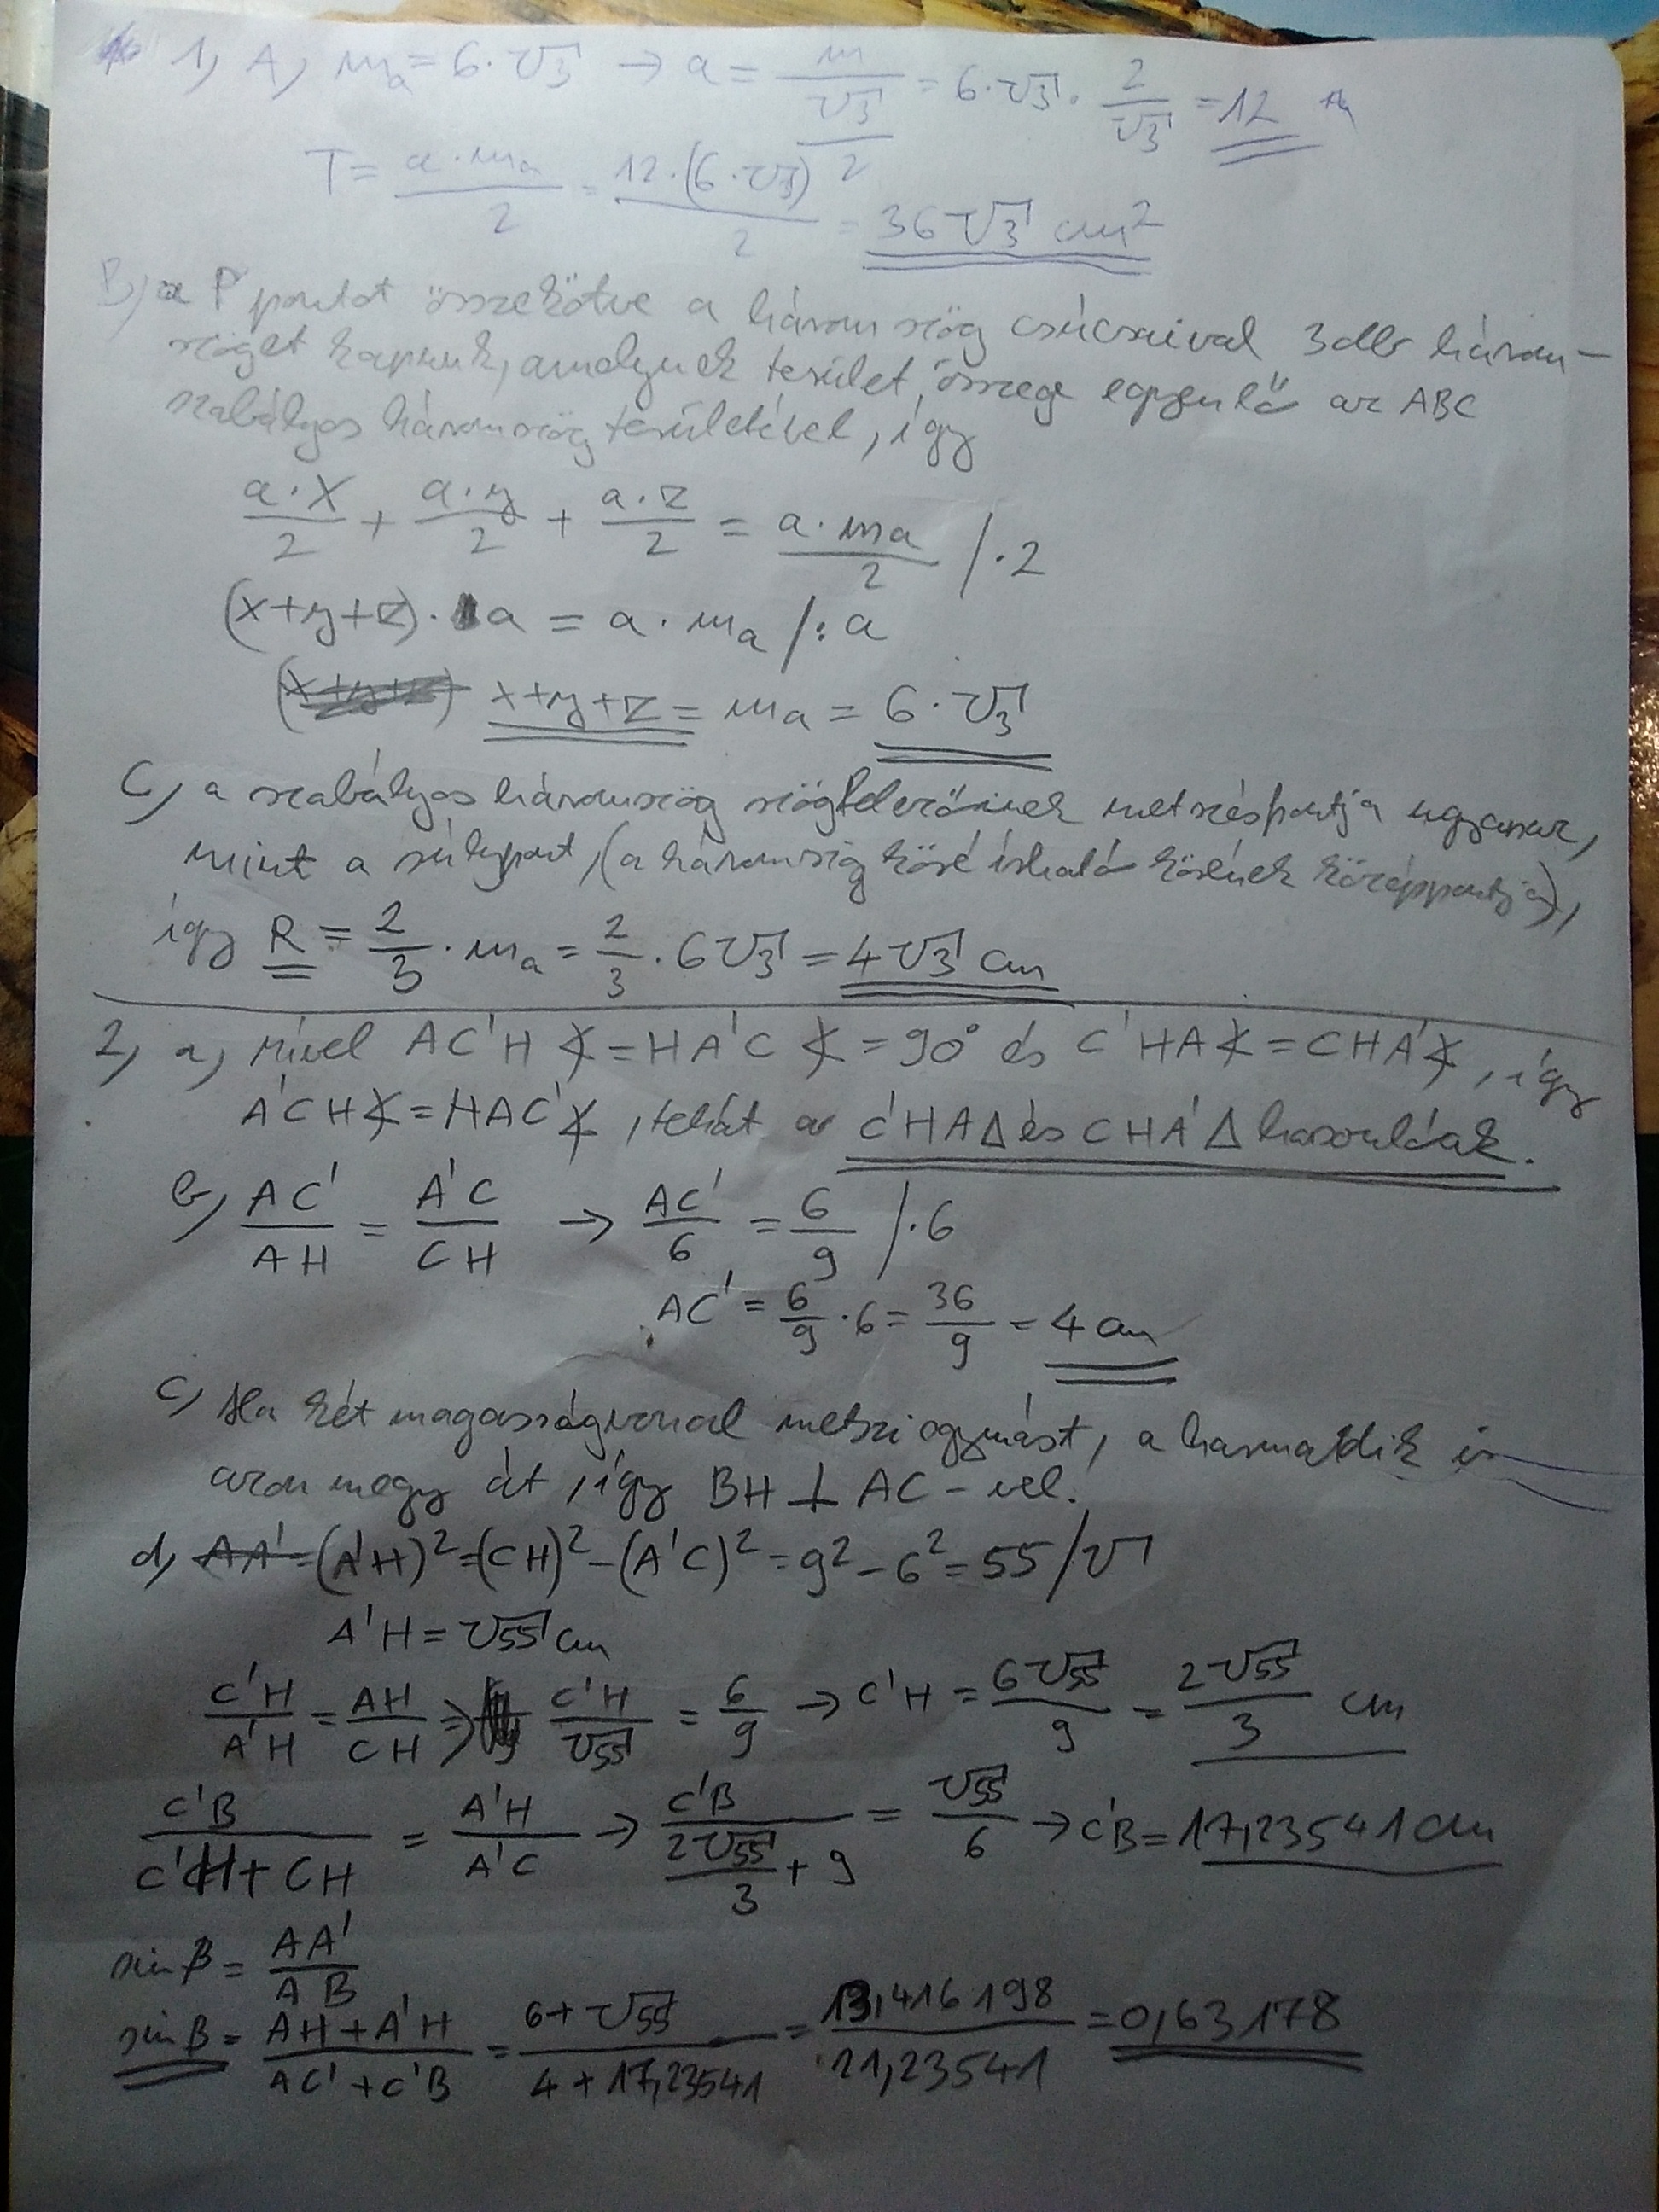 1, A, mₐ = 6·√3 → a = m/(√3/2) = 6·√3 · 2/√3 = 12
T = a·mₐ/2 = 12·(6·√3)/2 = 36√3 cm²
B, a P pontot összekötve a háromszög csúcsaival 3db három-
szöget kapunk, amelynek terület összege egyenlő az ABC
szabályos háromszög területével, így
a·x/2 + a·y/2 + a·z/2 = a·mₐ/2 /·2
(x+y+z)·a = a·mₐ /:a
(x+y+z) x+y+z = mₐ = 6·√3
C, a szabályos háromszög szögfelezőinek metszéspontja ugyanaz,
mint a súlypont, (a háromszög köré írható körének középpontja),
így R = 2/3·mₐ = 2/3·6√3 = 4√3 cm
2, a, mivel AC'H∢ = HA'C∢ = 90° és C'HA∢ = CHA'∢, így
A'CH∢ = HAC'∢, tehát a C'HA△ és CHA'△ hasonlóak.
b, AC'/AH = A'C/CH → AC'/6 = 6/9 /·6
AC' = 6/9·6 = 36/9 = 4 cm
c, Ha két magasságvonal metszi egymást, a harmadik is
azon megy át, így BH ⊥ AC-vel.
d, AA' = (A'H)² = (CH)² - (A'C)² = 9² - 6² = 55 /√
A'H = √55 cm
C'H/A'H = AH/CH ⇒ C'H/√55 = 6/9 → C'H = 6√55/9 = 2√55/3 cm
C'B/(C'H + CH) = A'H/A'C → C'B/(2√55/3 + 9) = √55/6 → C'B = 17,23541 cm
sin β = AA'/AB
sin β = (AH + A'H)/(AC' + C'B) = (6 + √55)/(4 + 17,23541) = 13,416198/21,23541 = 0,63178